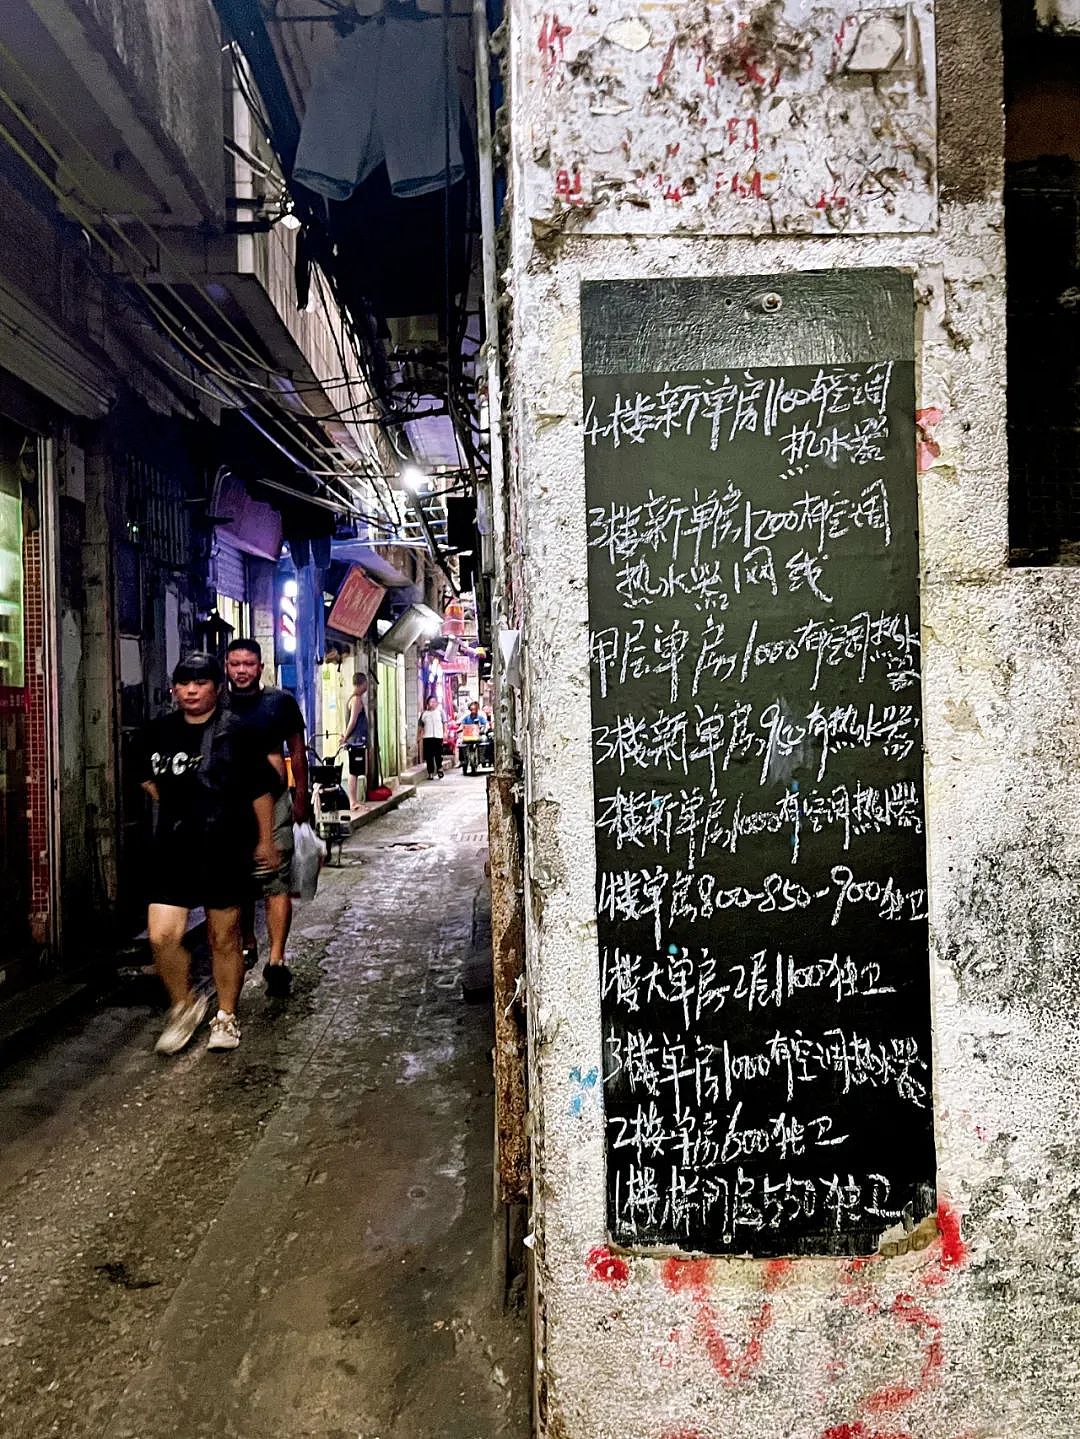 4楼新单房1100有空调
热水器
3楼新单房1200有空调
热水器 网线
甲层单房1000有空调热水
器
3楼新单房900有热水器
2楼新单房1000有空调热水器
1楼单房800-850-900独卫
1楼大单房2层1100独卫
3楼单房1000有空调热水器
2楼单房600独卫
1楼梯间房550独卫